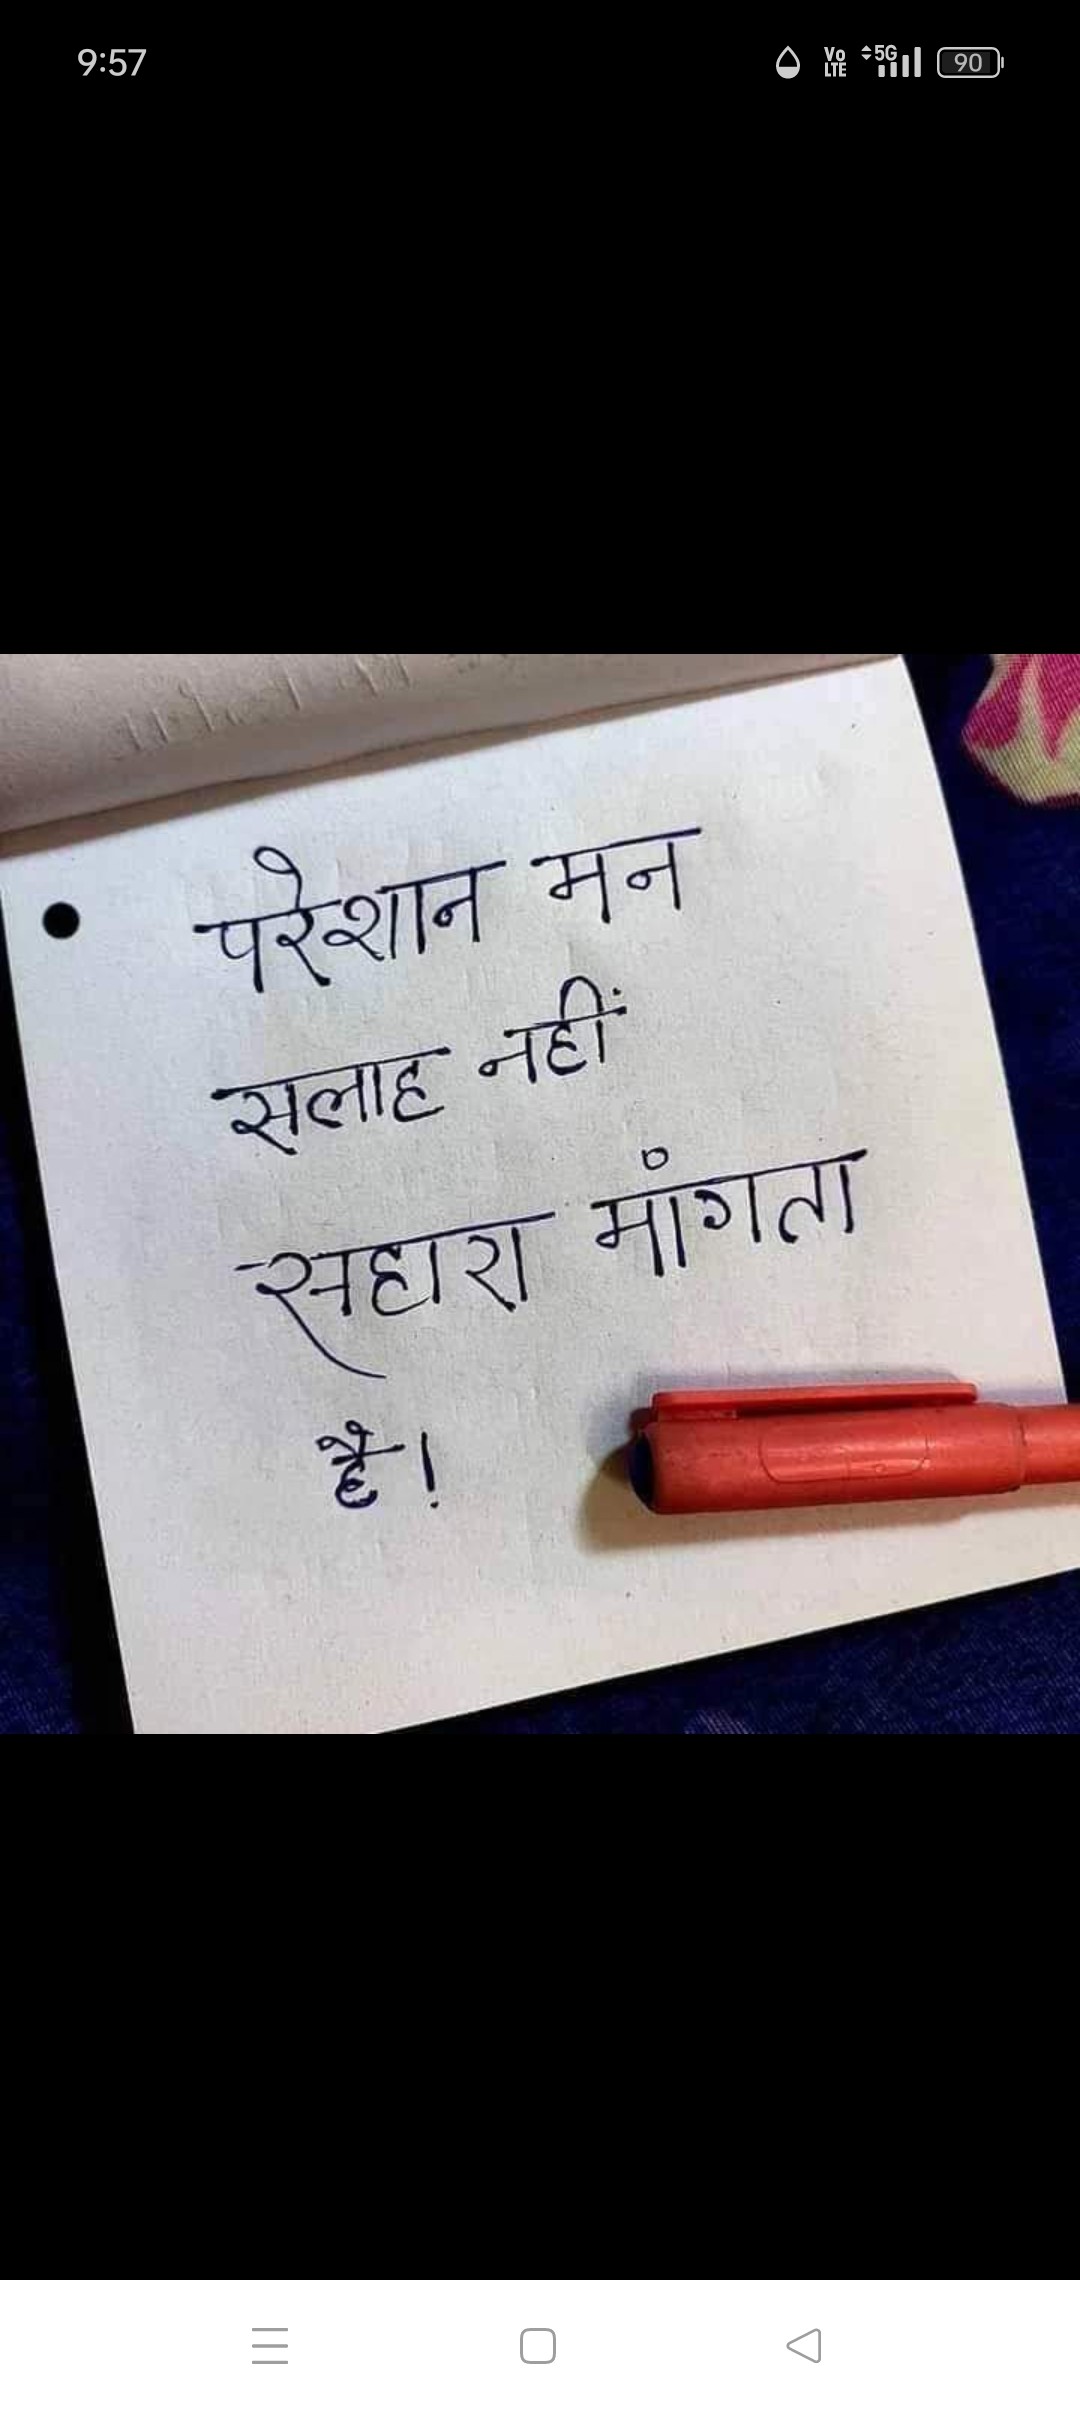 9:57
Vo
LTE
5G
90
परेशान मन
सलाह नहीं
सहारा मांगता
है!